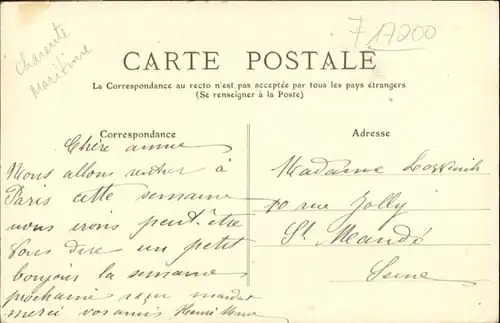 Charente
Maritime
F 17200
CARTE POSTALE
La Correspondance au recto n'est pas acceptée par tous les pays étrangers
(Se renseigner à la Poste)
Correspondance
Adresse
Chère amie
Nous allons rentrer à
Paris cette semaine
nous irons peut être
vous dire un petit
bonjour la semaine
prochaine reçu mandat
merci vos amis Henri
Madame
10 rue Jolly
St Mandé
Seine